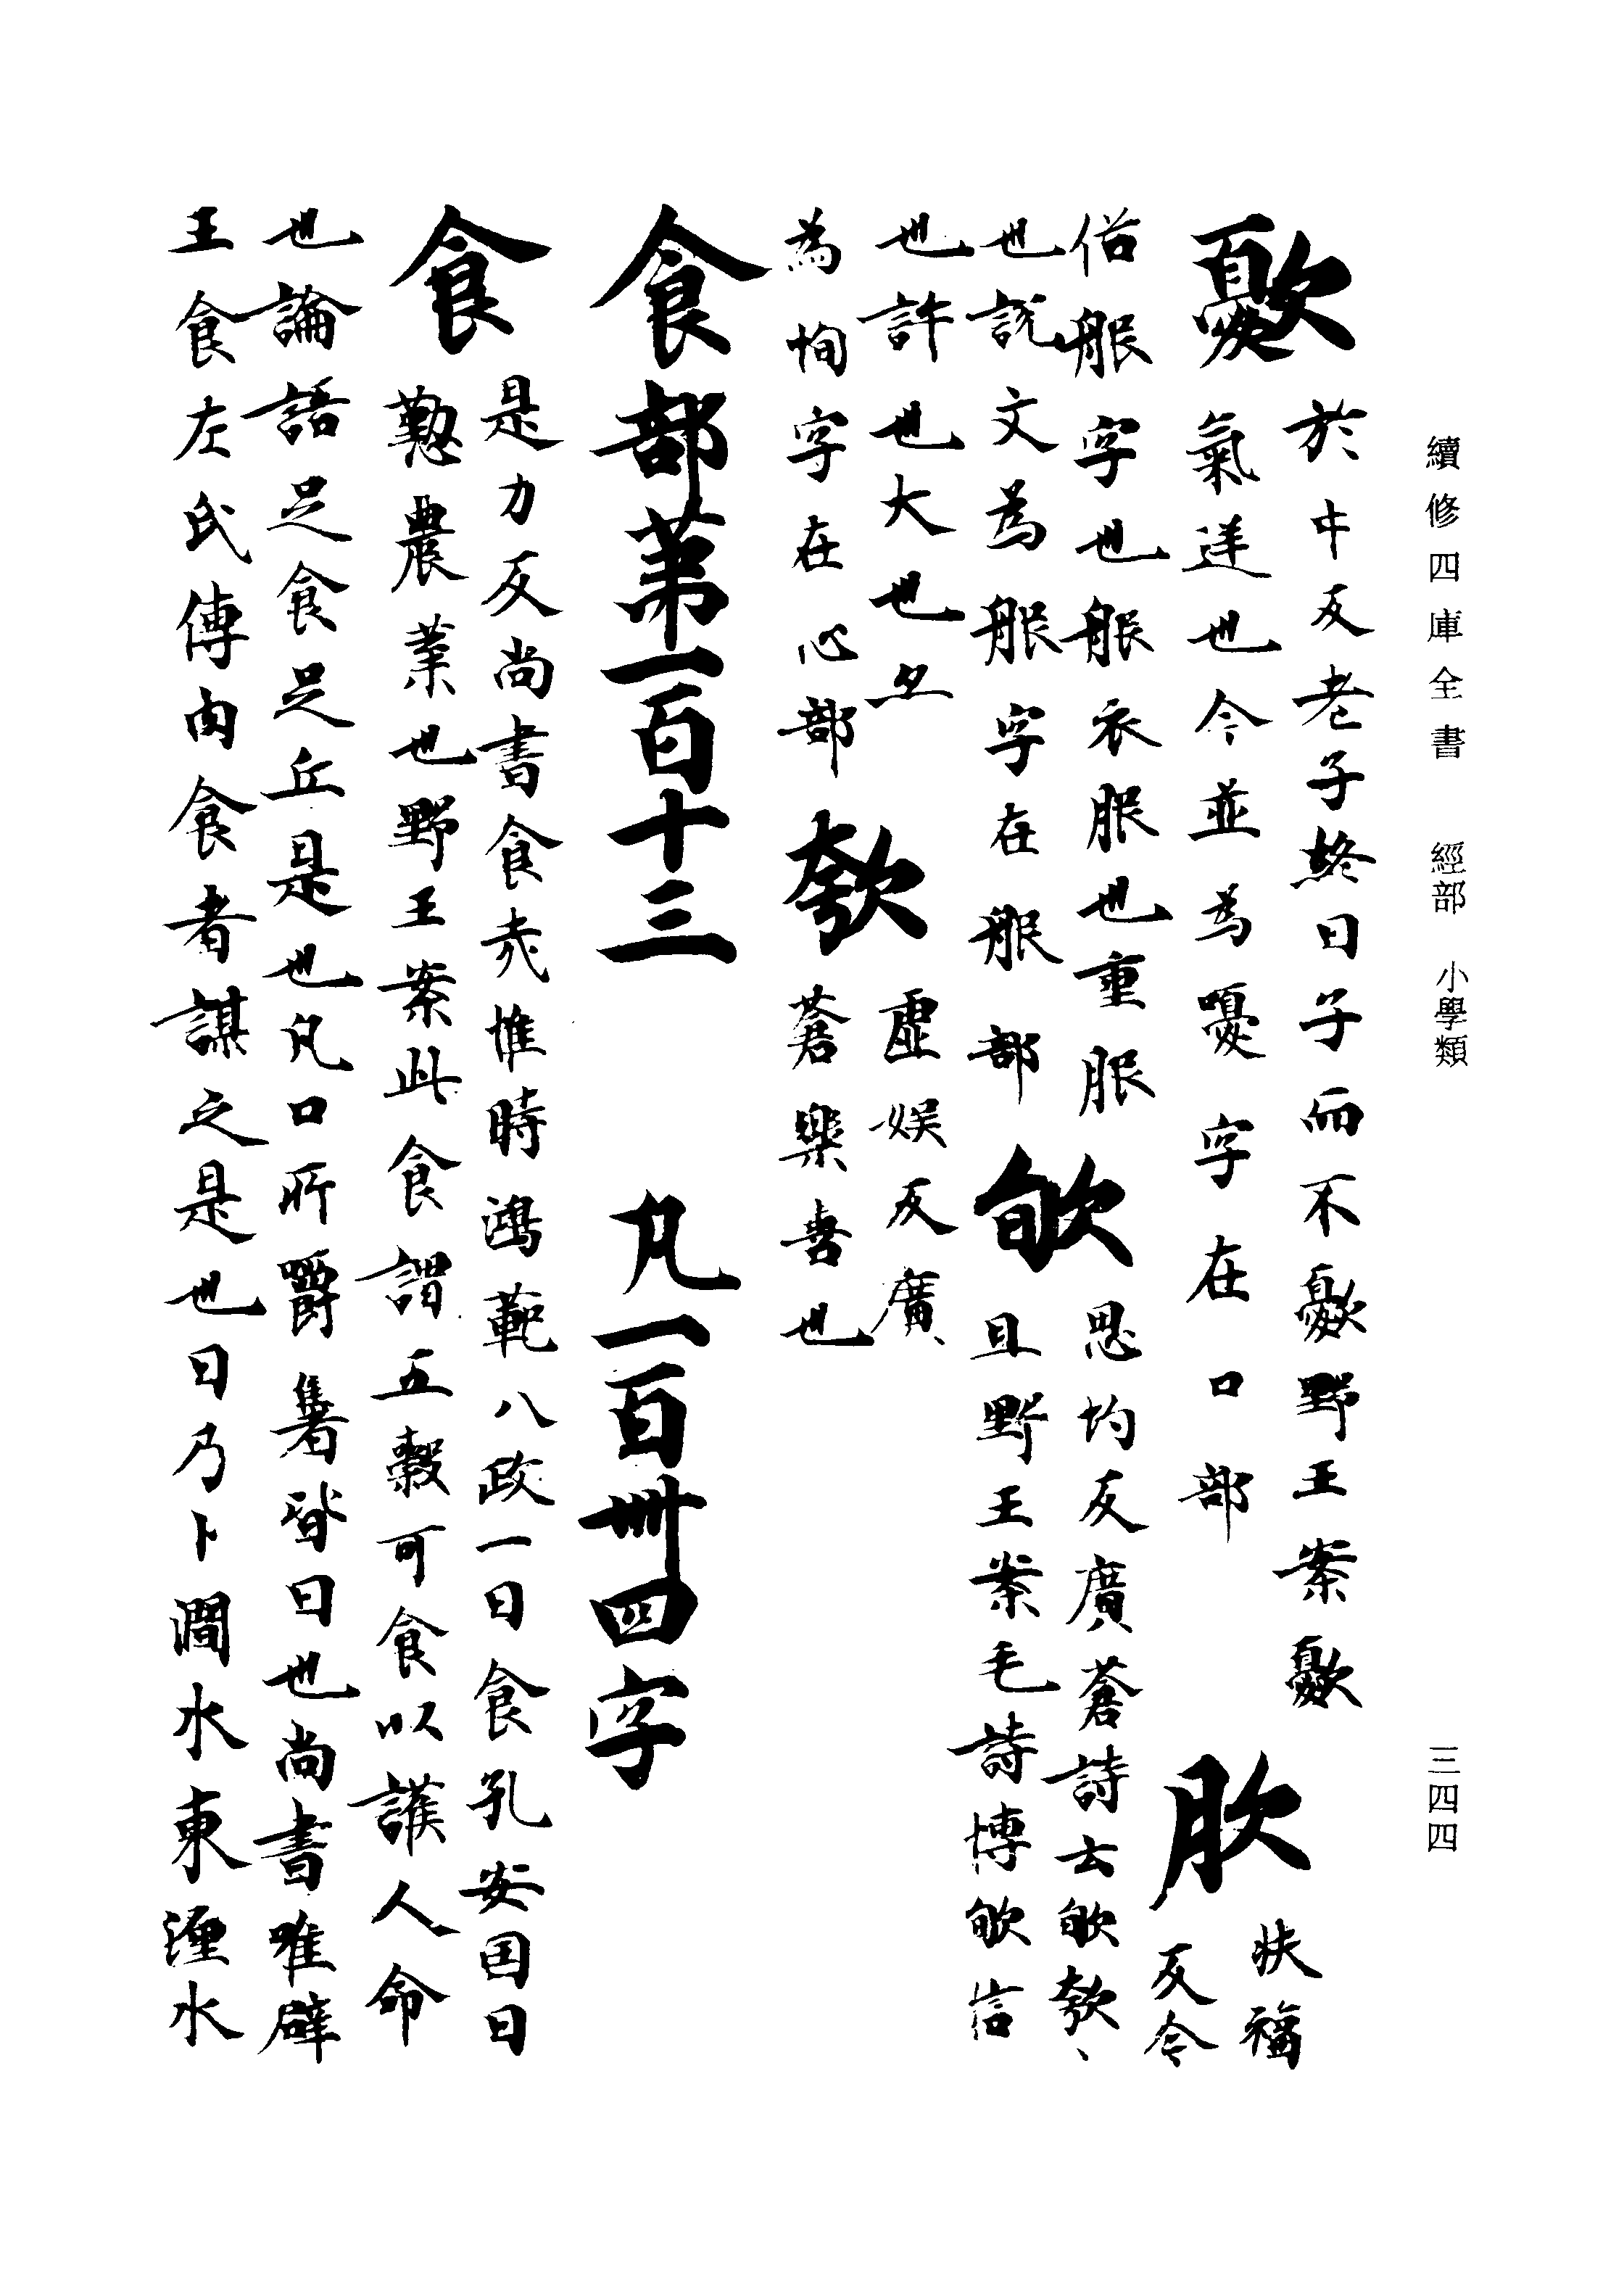 續修四庫全書 經部 小學類
三四四
歐於中反老子終日子而不歐野王案歐
氣逆也今並為嚘字在口部
肷扶福
反今
俗服字也服衣服也重服
也說文為服字在服部
欨思均反廣蒼詩云欨欷、
且野王案毛詩博欨信
也許也大也
為恂字在心部
欷虛娛反廣、
蒼樂喜也
食部苐一百十三 凡一百卌四字
食是力反尚書食哉惟時鴻範八政一曰食孔安国曰
懃農業也野王案此食謂五穀可食以護人命
也論語足食足丘是也凡口所嚼著皆曰也尚書唯辟
王食左氏傳肉食者謀之是也曰乃卜澗水東湹水